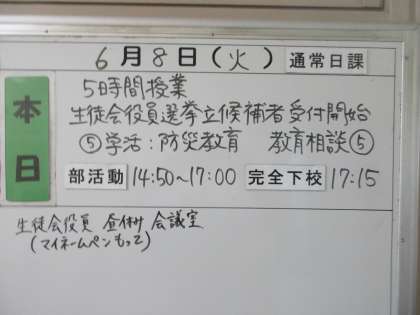 6月8日(火) 通常日課
本日
5時間授業
生徒会役員選挙立候補者受付開始
⑤学活:防災教育 教育相談⑤
部活動 14:50~17:00 完全下校 17:15
生徒会役員 昼休み 会議室
(マイネームペンもって)